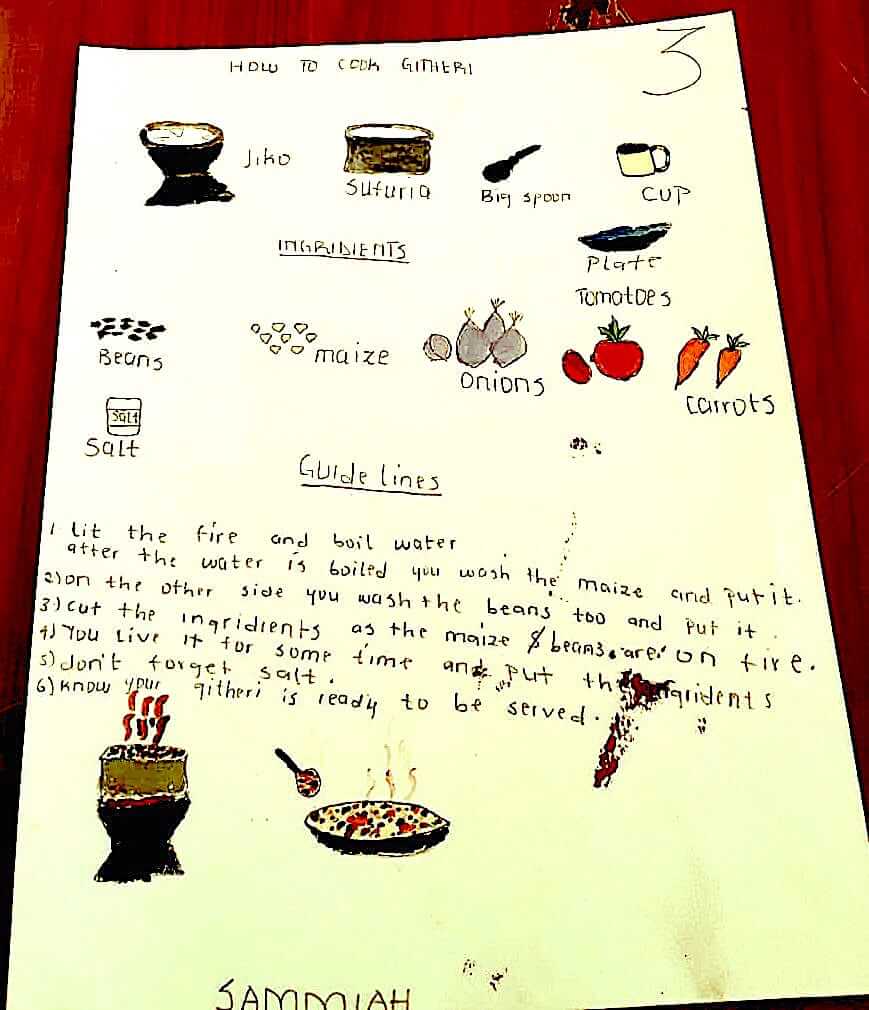 3
HOW TO COOK GITHERI
Jiko
Sufuria
Big spoon
CUP
INGRIDIENTS
Plate
Tomatoes
Beans
maize
Onions
Carrots
Salt
Salt
Guide lines
1 Lit the fire and boil water
after the water is boiled you wash the maize and put it.
2) on the other side you wash the beans too and put it.
3) cut the ingridients as the maize & beans are on fire.
4) You live it for some time and put the ingridents
5) don't forget salt.
6) know your githeri is ready to be served.
SAMMIAH